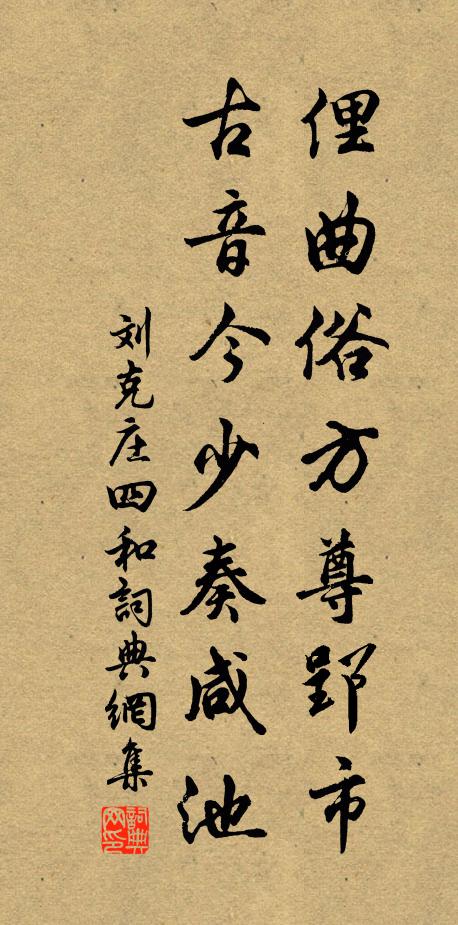 俚曲俗方尊郢市
古音今少奏咸池
刘克庄四和詞典網集
詞典網印